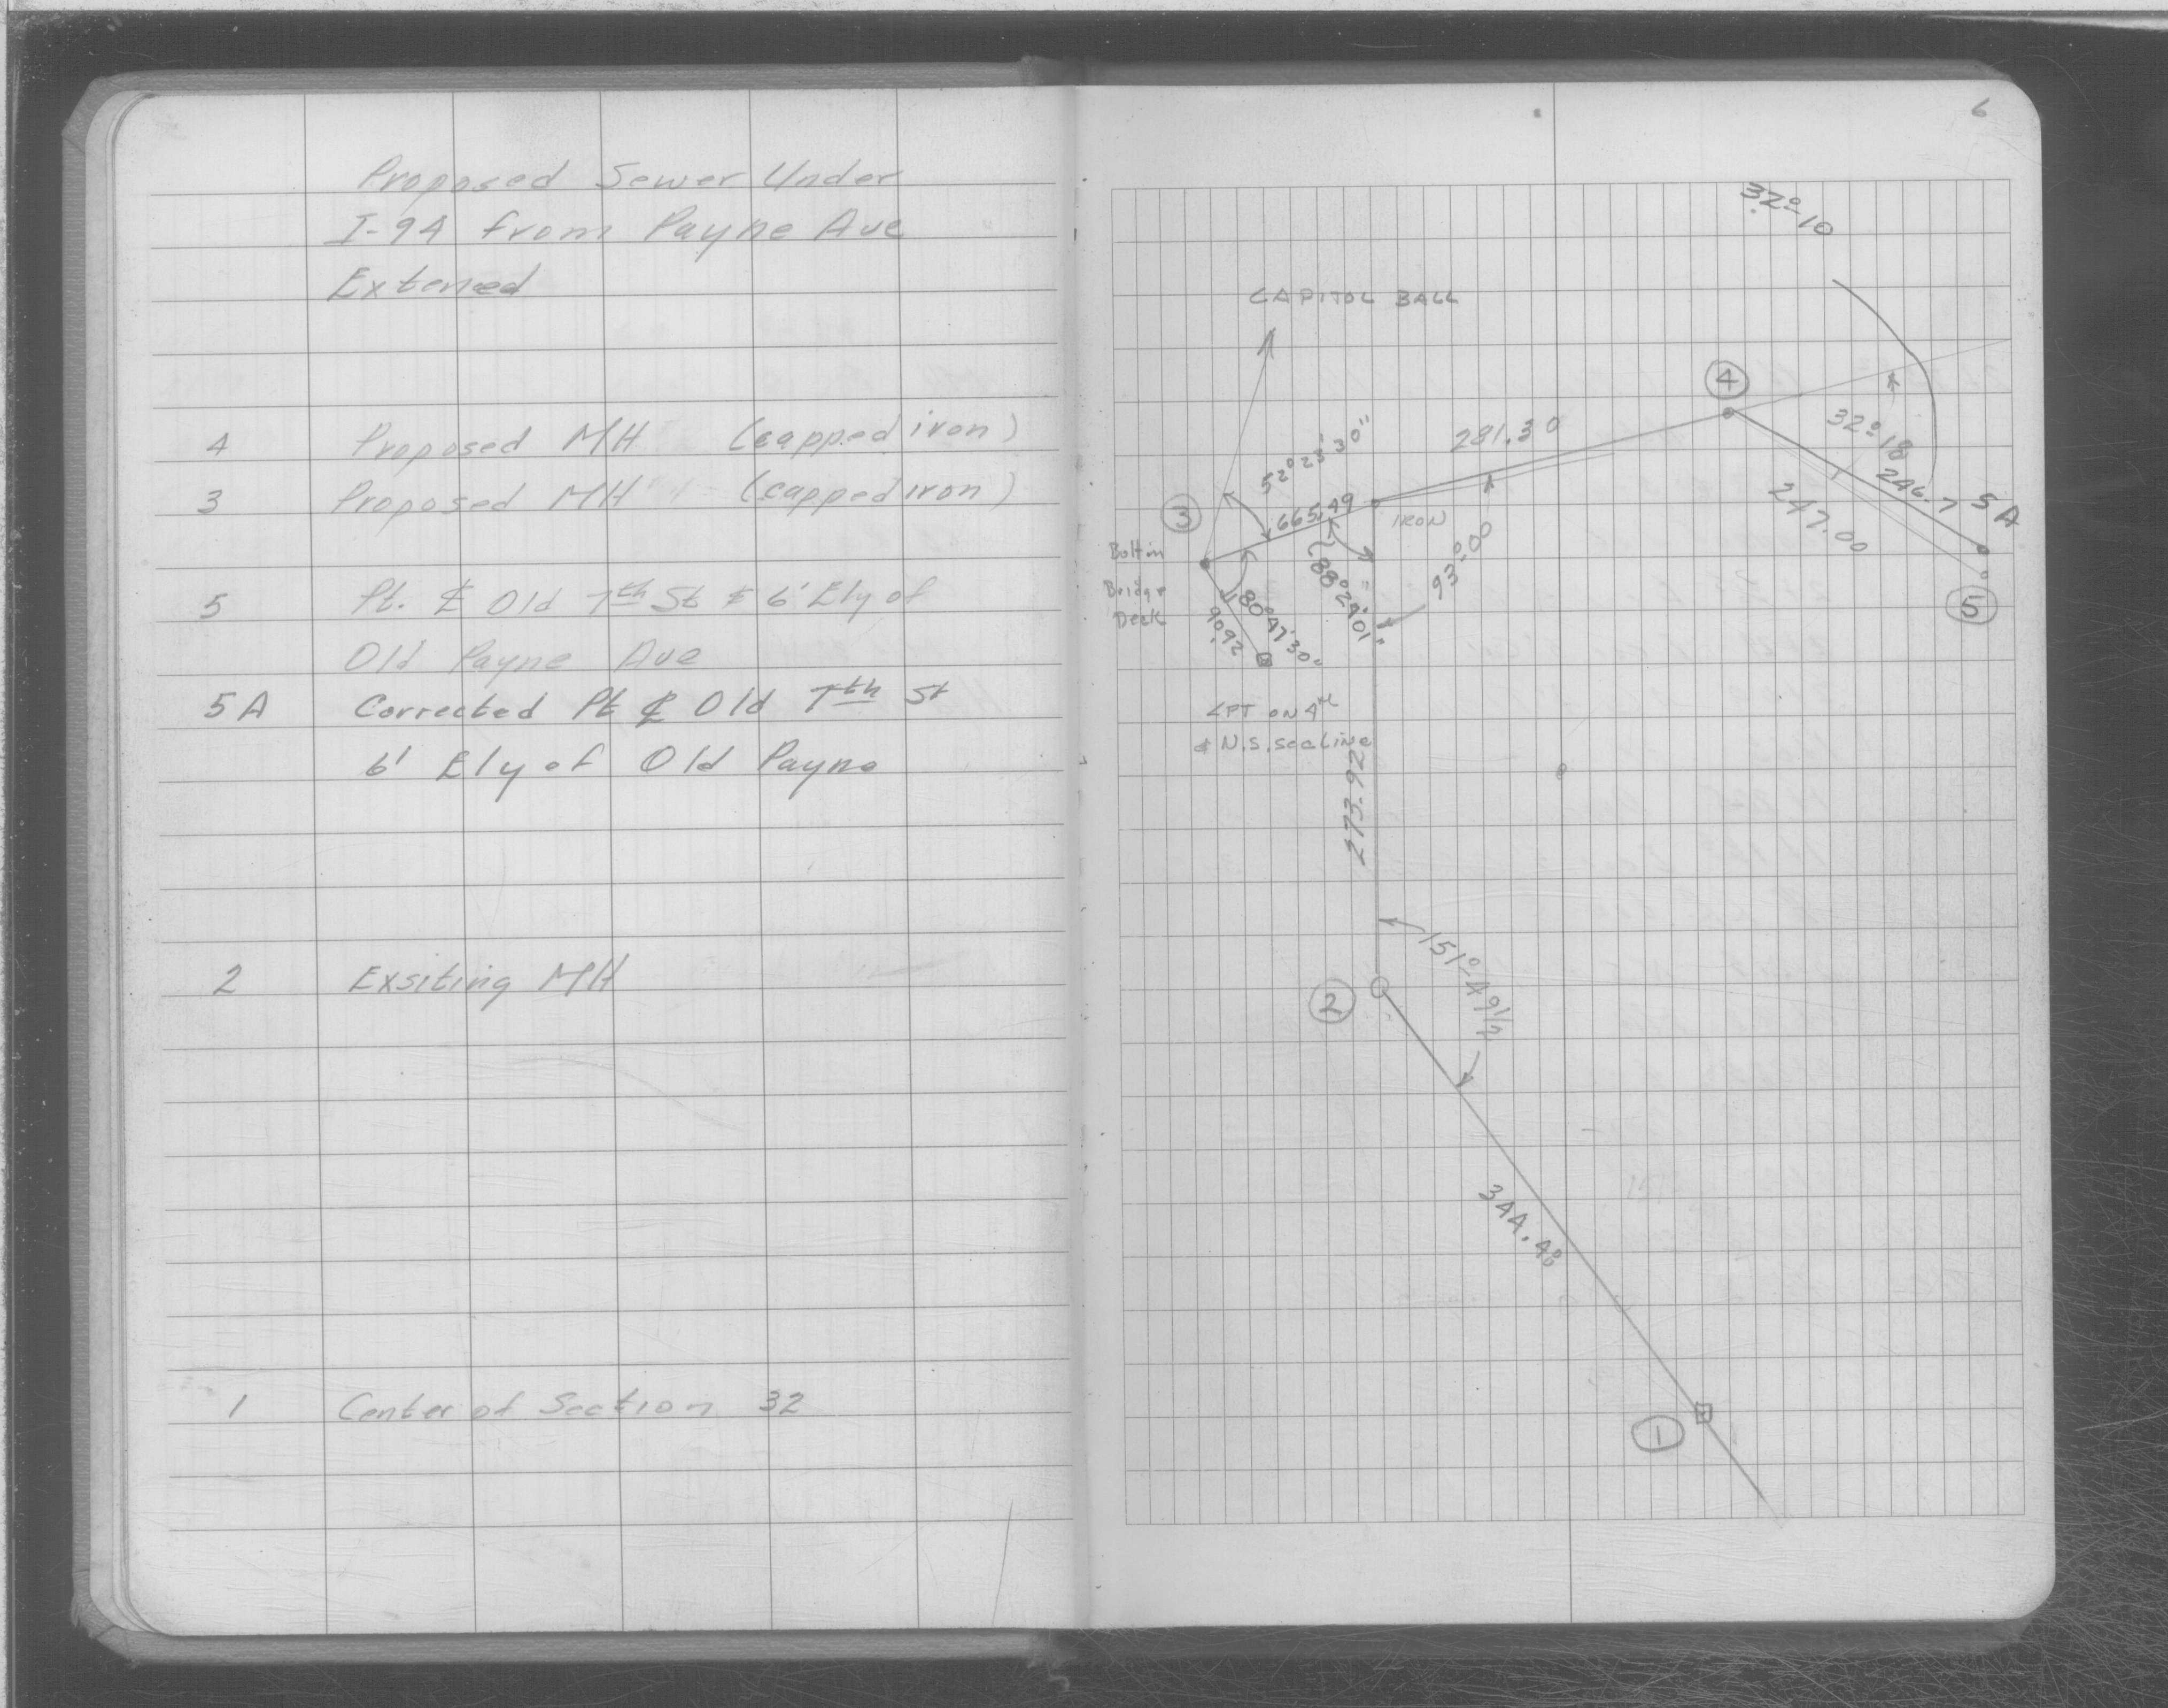 Proposed Sewer Under
I-94 from Payne Ave
Extened
4 Proposed MH (capped iron)
3 Proposed MH (capped iron)
5 Pt. ℄ Old 7th St & 6' Ely of
Old Payne Ave
5A Corrected Pt ℄ Old 7th St
6' Ely of Old Payne
2 Exsiting MH
1 Center of Section 32
6
32°-10
CAPITOL BALL
4
32°-18
281.30
52°23'30"
246.7
5A
247.00
3
665.49
IRON
93°-00
Bolt in
Bridge
Deck
88°24'01"
80°47'30"
90.92
5
LPT ON 4th
& N.S. sec Line
273.92
151°-49 1/2
2
344.48
1